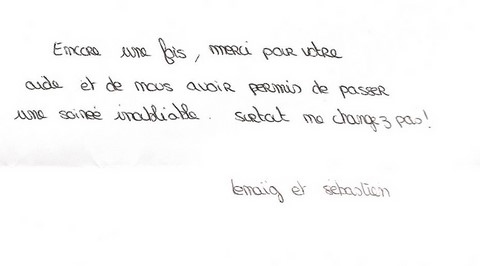 Encore une fois, merci pour votre
aide et de nous avoir permis de passer
une soirée inoubliable. Surtout ne changez pas!
et Sébastien